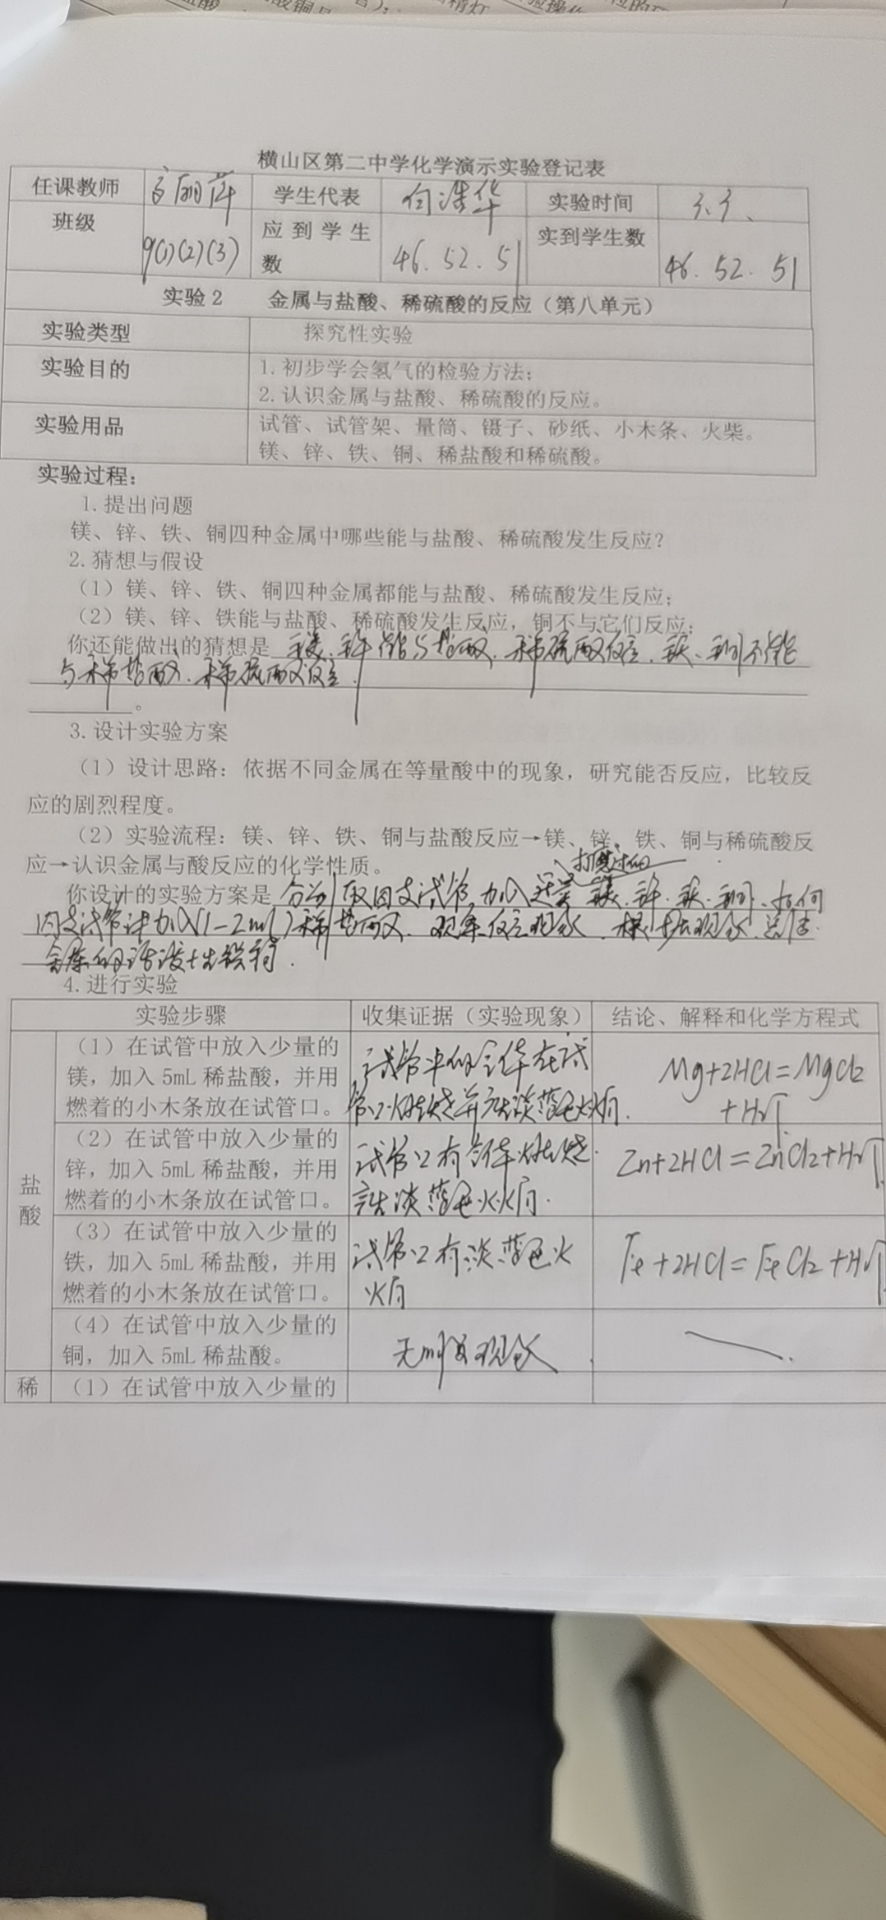 横山区第二中学化学演示实验登记表
任课教师 学生代表 白浩华 实验时间 3.3.
班级 9(1)(2)(3) 应到学生数 46.52.51 实到学生数 46.52.51
实验2 金属与盐酸、稀硫酸的反应（第八单元）
实验类型 探究性实验
实验目的 1.初步学会氢气的检验方法；
2.认识金属与盐酸、稀硫酸的反应。
实验用品 试管、试管架、量筒、镊子、砂纸、小木条、火柴。
镁、锌、铁、铜、稀盐酸和稀硫酸。
实验过程：
1.提出问题
镁、锌、铁、铜四种金属中哪些能与盐酸、稀硫酸发生反应？
2.猜想与假设
（1）镁、锌、铁、铜四种金属都能与盐酸、稀硫酸发生反应；
（2）镁、锌、铁能与盐酸、稀硫酸发生反应，铜不与它们反应；
你还能做出的猜想是 镁、锌能与盐酸、稀硫酸反应，铁、铜不能
与稀盐酸、稀硫酸反应.
。
3.设计实验方案
（1）设计思路：依据不同金属在等量酸中的现象，研究能否反应，比较反
应的剧烈程度。
（2）实验流程：镁、锌、铁、铜与盐酸反应→镁、锌、铁、铜与稀硫酸反
应→认识金属与酸反应的化学性质。
打磨过的
你设计的实验方案是 分别取四支试管,加入适量镁、锌、铁、铜、
四支试管中加入(1-2ml)稀盐酸, 观察反应现象, 根据现象
金属的活泼
4.进行实验
实验步骤 收集证据（实验现象） 结论、解释和化学方程式
盐酸
（1）在试管中放入少量的
镁，加入5mL稀盐酸，并用
燃着的小木条放在试管口。
试管中的气体在试
管口燃烧并产生淡蓝色火焰.
Mg+2HCl=MgCl2
+H2↑
（2）在试管中放入少量的
锌，加入5mL稀盐酸，并用
燃着的小木条放在试管口。
试管口有气体燃烧
淡蓝色火焰.
Zn+2HCl=ZnCl2+H2↑
（3）在试管中放入少量的
铁，加入5mL稀盐酸，并用
燃着的小木条放在试管口。
试管口有淡蓝色火
焰
Fe+2HCl=FeCl2+H2↑
（4）在试管中放入少量的
铜，加入5mL稀盐酸。
无明显现象
稀 （1）在试管中放入少量的